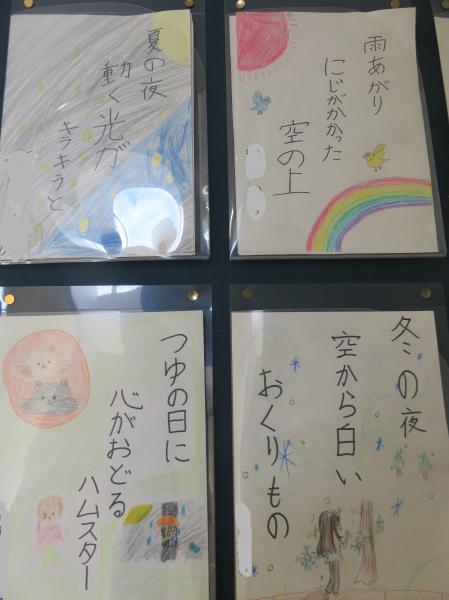 夏の夜
動く光が
キラキラと
雨あがり
にじがかかった
空の上
つゆの日に
心がおどる
ハムスター
冬の夜
空から白い
おくりもの